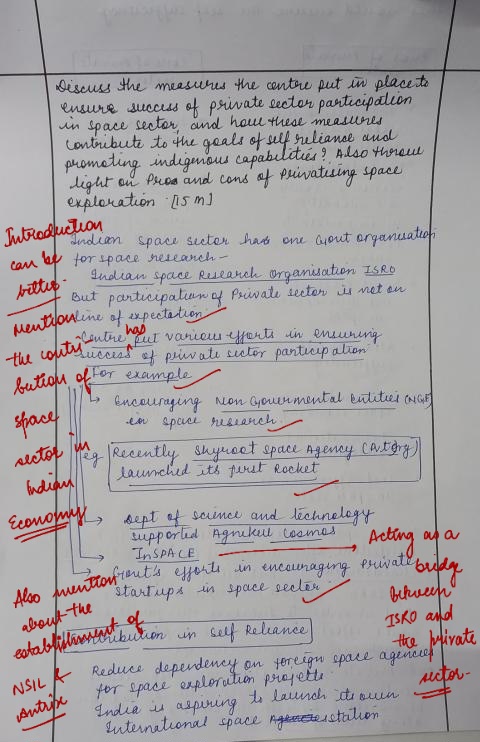 Discuss the measures the centre put in place to
ensure success of private sector participation
in space sector, and how these measures
contribute to the goals of self reliance and
promoting indigenous capabilities? Also throw
light on Pros and cons of privatising space
exploration. [15 M]
Introduction
can be
better.
Mention
the contri
bution of
space
sector in
Indian
Economy
Indian space sector has one Govt organisation
for space research -
Indian Space Research Organisation ISRO
But participation of Private sector is not on
line of expectation.
Centre has put various efforts in ensuring
success of private sector participation
For example
Encouraging Non Governmental Entities (NGE)
in space research.
eg Recently Skyroot space Agency
launched its first Rocket
Dept of science and technology
supported Agnikul Cosmos
InSPACE
Acting as a
bridge
between
ISRO and
the private
sector.
Govt's efforts in encouraging Private
startups in space sector.
Also mention
about the
establishment of
NSIL &
Antrix
Contribution in Self Reliance
Reduce dependency on foreign space agencies
for space exploration projects
India is aspiring to launch its own
International space station